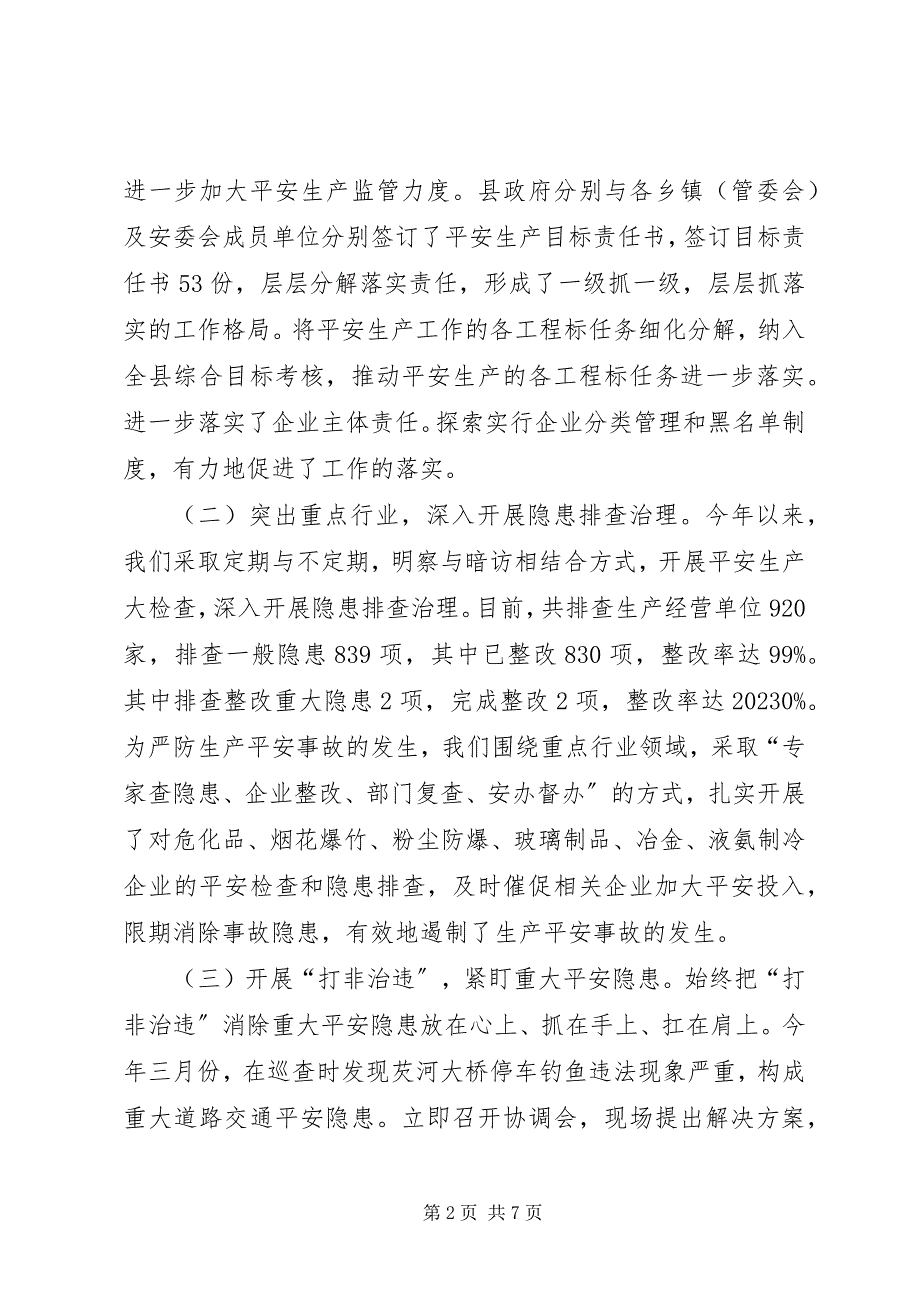 进一步加大平安生产监管力度。县政府分别与各乡镇（管委会）
及安委会成员单位分别签订了平安生产目标责任书，签订目标责
任书 53 份，层层分解落实责任，形成了一级抓一级，层层抓落
实的工作格局。将平安生产工作的各工程标任务细化分解，纳入
全县综合目标考核，推动平安生产的各工程标任务进一步落实。
进一步落实了企业主体责任。探索实行企业分类管理和黑名单制
度，有力地促进了工作的落实。
（二）突出重点行业，深入开展隐患排查治理。今年以来，
我们采取定期与不定期，明察与暗访相结合方式，开展平安生产
大检查，深入开展隐患排查治理。目前，共排查生产经营单位 920
家，排查一般隐患 839 项，其中已整改 830 项，整改率达 99%。
其中排查整改重大隐患 2 项，完成整改 2 项，整改率达 20230%。
为严防生产平安事故的发生，我们围绕重点行业领域，采取“专
家查隐患、企业整改、部门复查、安办督办〞的方式，扎实开展
了对危化品、烟花爆竹、粉尘防爆、玻璃制品、冶金、液氨制冷
企业的平安检查和隐患排查，及时催促相关企业加大平安投入，
限期消除事故隐患，有效地遏制了生产平安事故的发生。
（三）开展“打非治违〞，紧盯重大平安隐患。始终把“打
非治违〞消除重大平安隐患放在心上、抓在手上、扛在肩上。今
年三月份，在巡查时发现茨河大桥停车钓鱼违法现象严重，构成
重大道路交通平安隐患。立即召开协调会，现场提出解决方案，
第 2 页 共 7 页